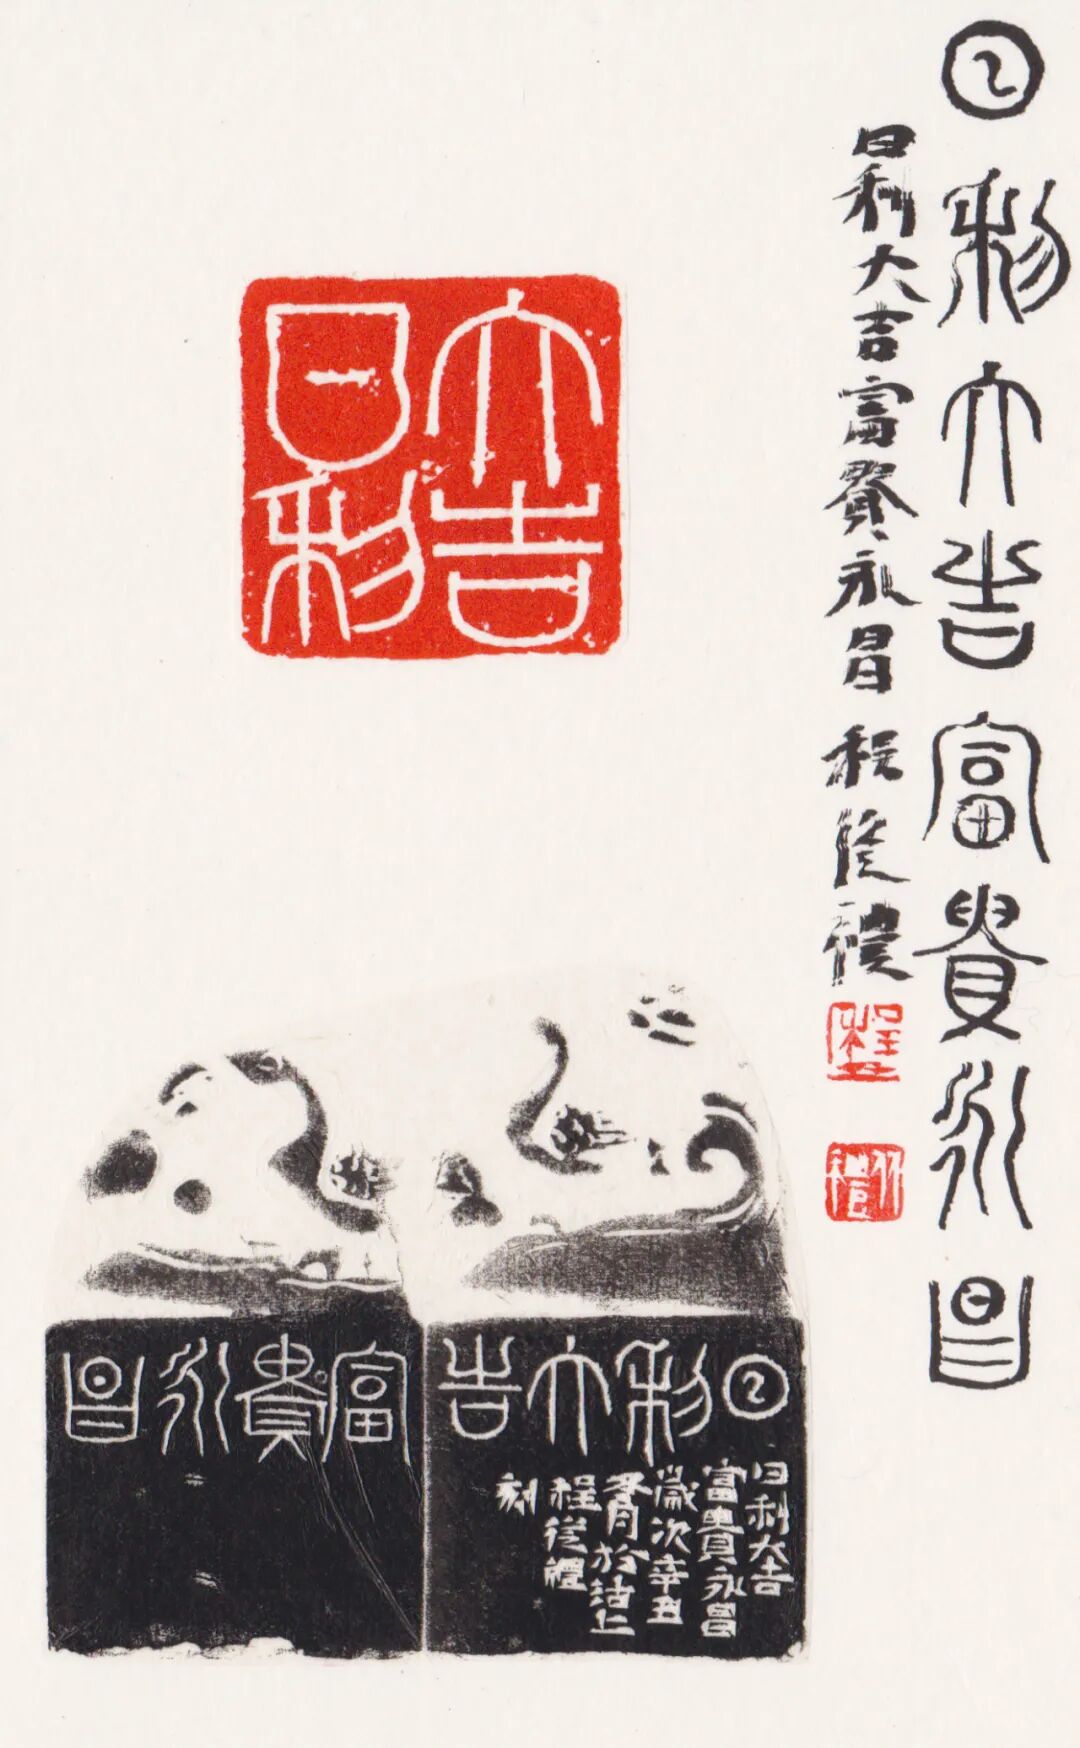 日利大吉富貴永昌
日利大吉富貴永昌 程從禮
程
大吉
日利
日利大吉
富貴永昌
日利大吉
富貴永昌
歲次辛丑
冬月於
程從禮
刻